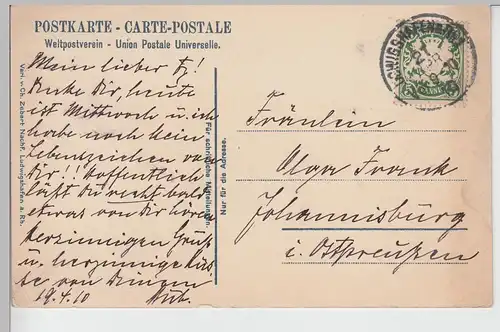 POSTKARTE - CARTE-POSTALE
Weltpostverein - Union Postale Universelle.
Mein lieber
Denke Dir, heute
ist Mittwoch u. ich
habe noch kein
Lebenszeichen von
Dir!! Hoffentlich
läßt Du recht bald
etwas von Dir hören
Herzinnigen Gruß
u. herzinnige Küs-
se von Deinem
19.4.10
Fräulein
Olga Frank
Johannisburg
i. Ostpreußen
Für schriftliche Mitteilungen.
Nur für die Adresse.
Verl. v. Ch. Zobert Nachf. Ludwigshafen a. Rh.